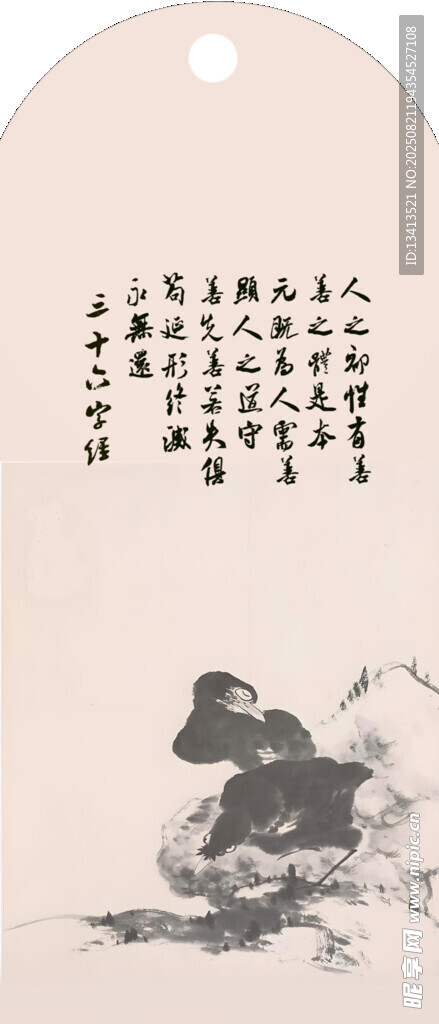 人之初性有善
善之體是本
元既為人需善
顯人之道守
善先善若失俱
苟延形終滅
永無還
三十六字經
ID:13413521 NO:20250821194354527108
昵享网 www.nipic.cn